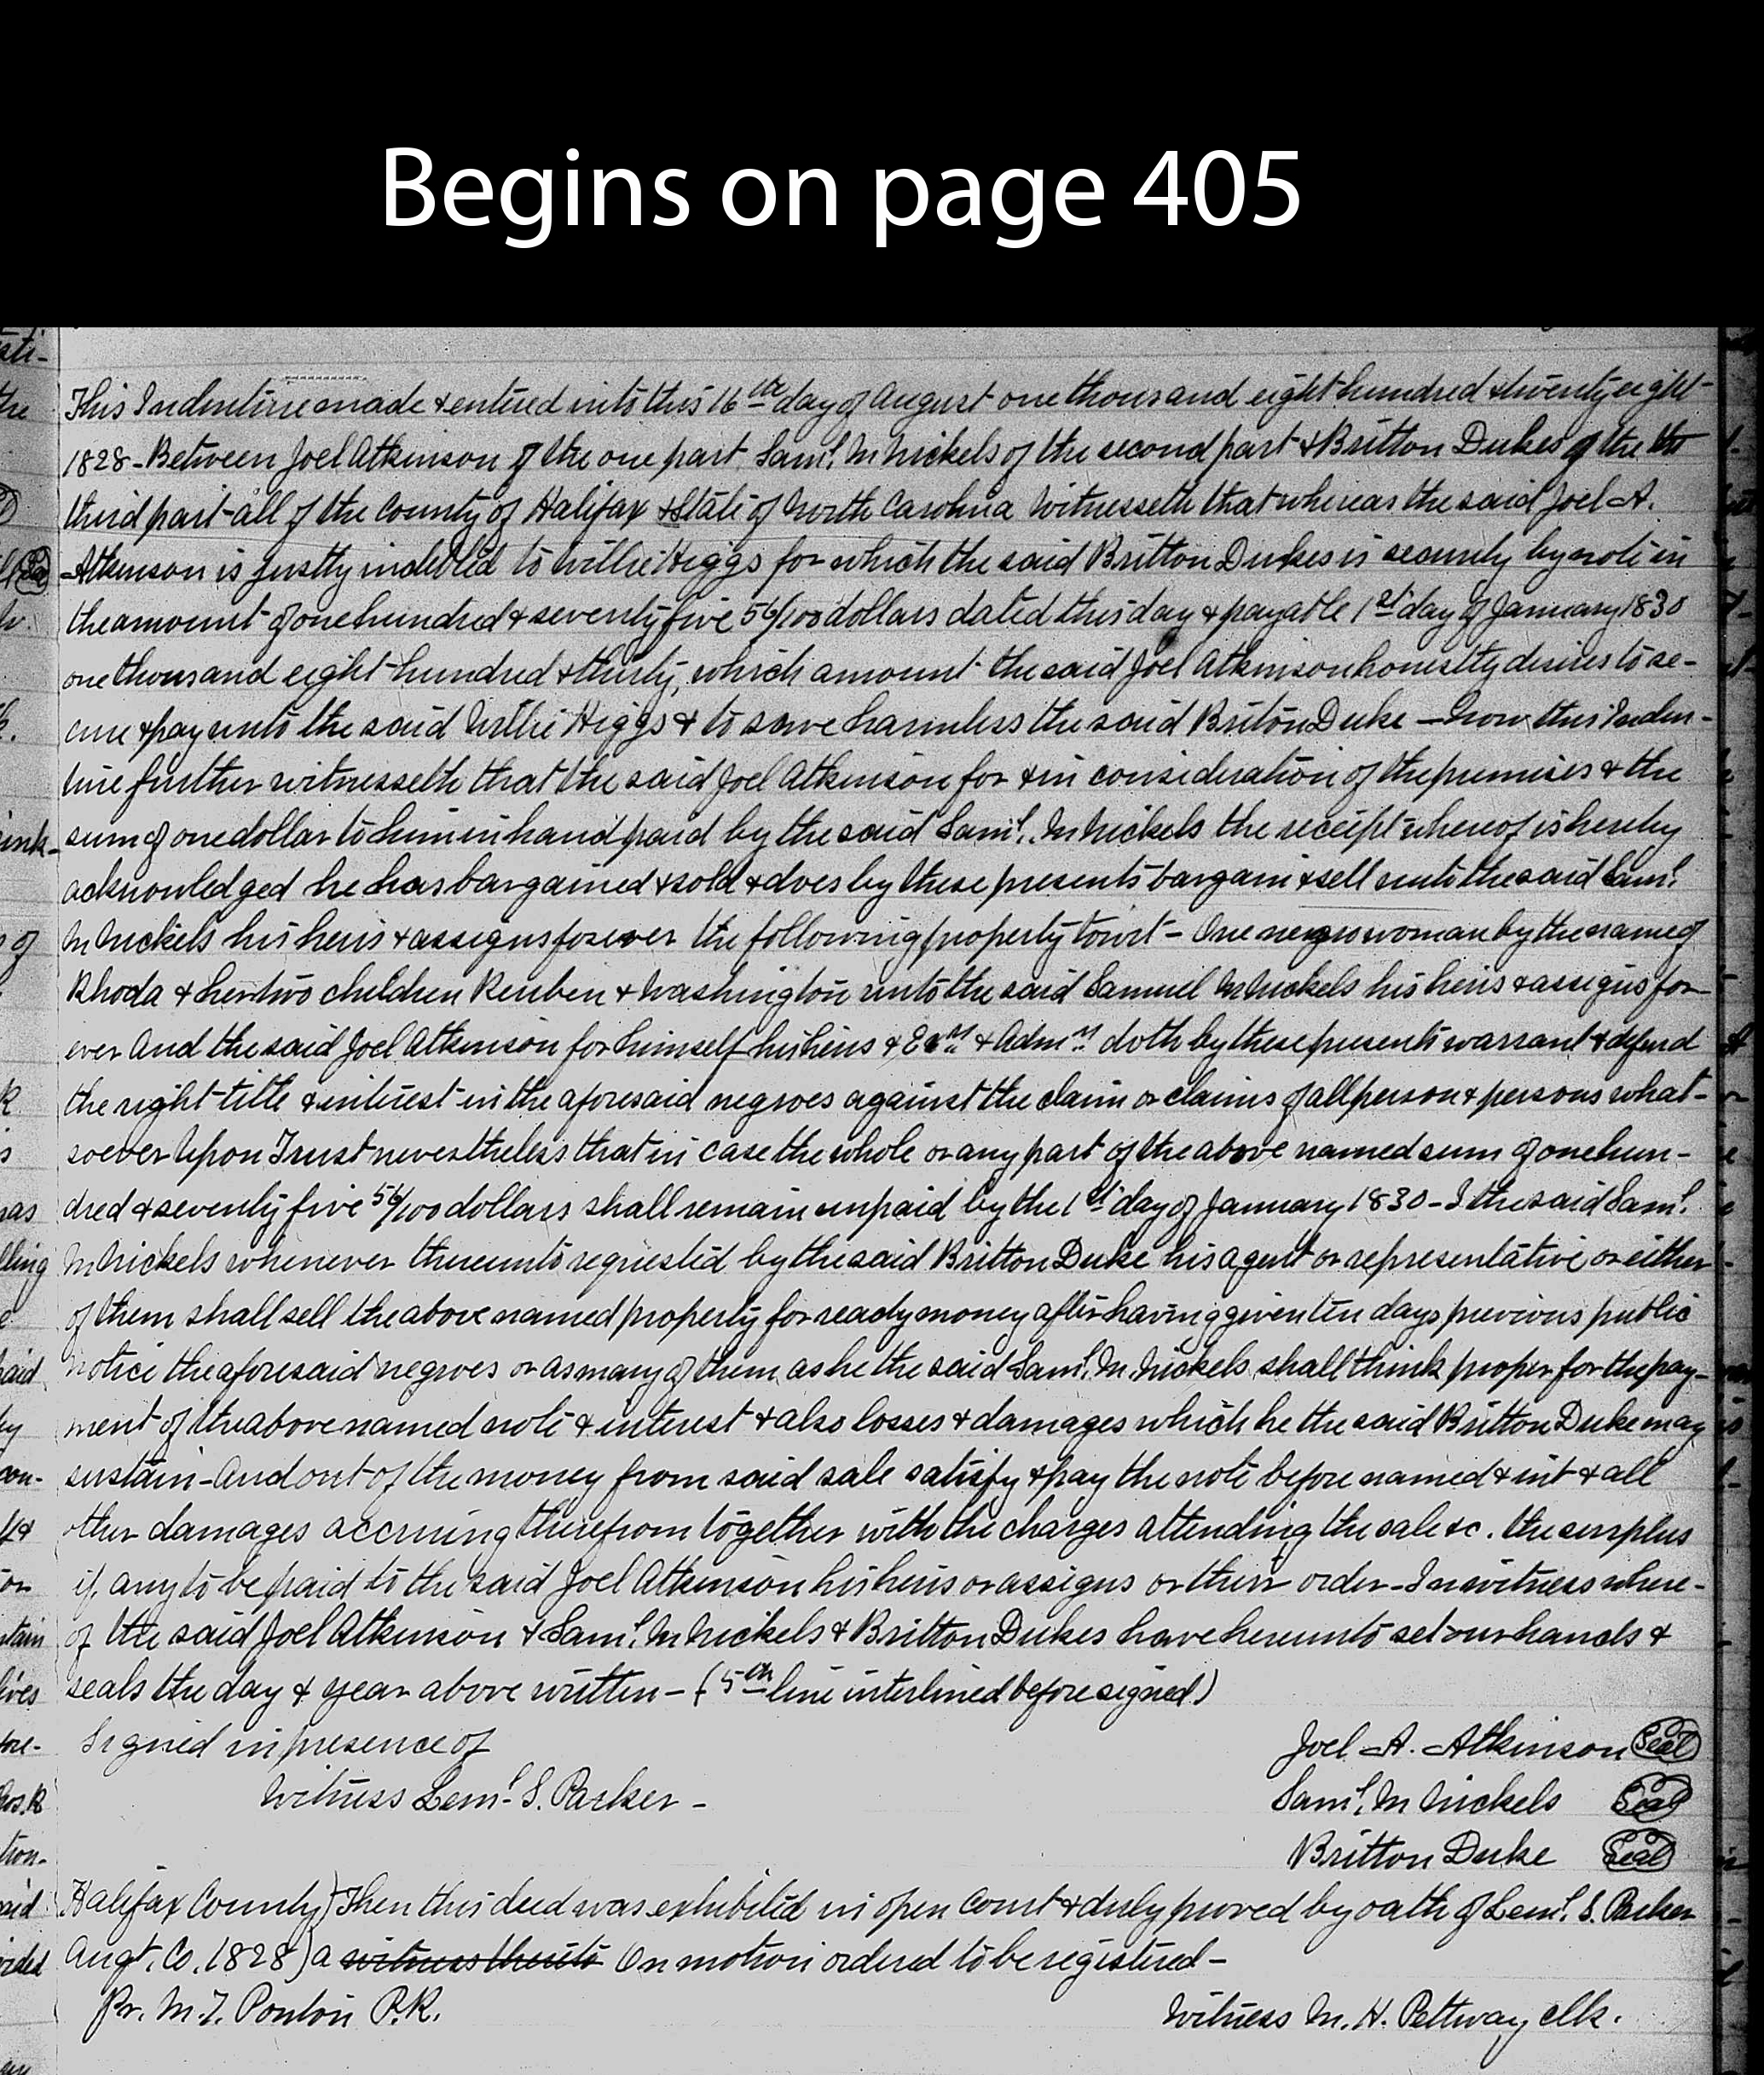 Begins on page 405
This Indenture made & entered into this 16th day of August one thousand eight hundred & twenty eight
1828 - Between Joel Atkinson of the one part Saml. M Nickels of the second part & Britton Dukes of the
third part all of the County of Halifax & State of North Carolina Witnesseth that whereas the said Joel A.
Atkinson is justly indebted to Willie Higgs for which the said Britton Dukes is security by note in
the amount of one hundred & seventy five 56/100 dollars dated this day & payable 1st day of January 1830
one thousand eight hundred & thirty, which amount the said Joel Atkinson honestly desires to se-
cure & pay unto the said Willie Higgs & to save harmless the said Briton Duke - Now this Inden-
ture further witnesseth that the said Joel Atkinson for & in consideration of the premises & the
sum of one dollar to him in hand paid by the said Saml. M Nickels the receipt whereof is hereby
acknowledged he has bargained & sold & does by these presents bargain & sell unto the said Saml.
M Nickels his heirs & assigns forever the following property towit - One negro woman by the name of
Rhoda & her two children Reuben & Washington unto the said Samuel M Nickels his heirs & assigns for
ever And the said Joel Atkinson for himself his heirs & Exrs & Admrs doth by these presents warrant & defend
the right title & interest in the aforesaid negroes against the claim or claims of all person & persons what-
soever Upon Trust nevertheless that in case the whole or any part of the above named sum of one hun-
dred & seventy five 56/100 dollars shall remain unpaid by the 1st day of January 1830 - I the said Saml.
M Nickels whenever thereunto requested by the said Britton Duke his agent or representative or either
of them shall sell the above named property for ready money after having given ten days previous public
notice the aforesaid negroes or as many of them as he the said Saml. M. Nickels shall think proper for the pay-
ment of the above named note & interest & also losses & damages which he the said Britton Duke may
sustain - And out of the money from said sale satisfy & pay the note before named & int & all
other damages accruing therefrom together with the charges attending the sale &c. the surplus
if any to be paid to the said Joel Atkinson his heirs or assigns or their order - In witness where-
of the said Joel Atkinson & Saml. M Nickels & Britton Dukes have hereunto set our hands &
seals the day & year above written - (5th line interlined before signed)
Signed in presence of Joel A. Atkinson Seal
Witness Leml. S. Parker - Saml. M Nickels Seal
Britton Duke Seal
Halifax County) Then this deed was exhibited in open Court & duly proved by oath of Leml. S. Parker
Augt. Co. 1828) a witness thereto On motion ordered to be registered -
Pr. M. T. Ponton P.R. Witness M. H. Pettway clk.